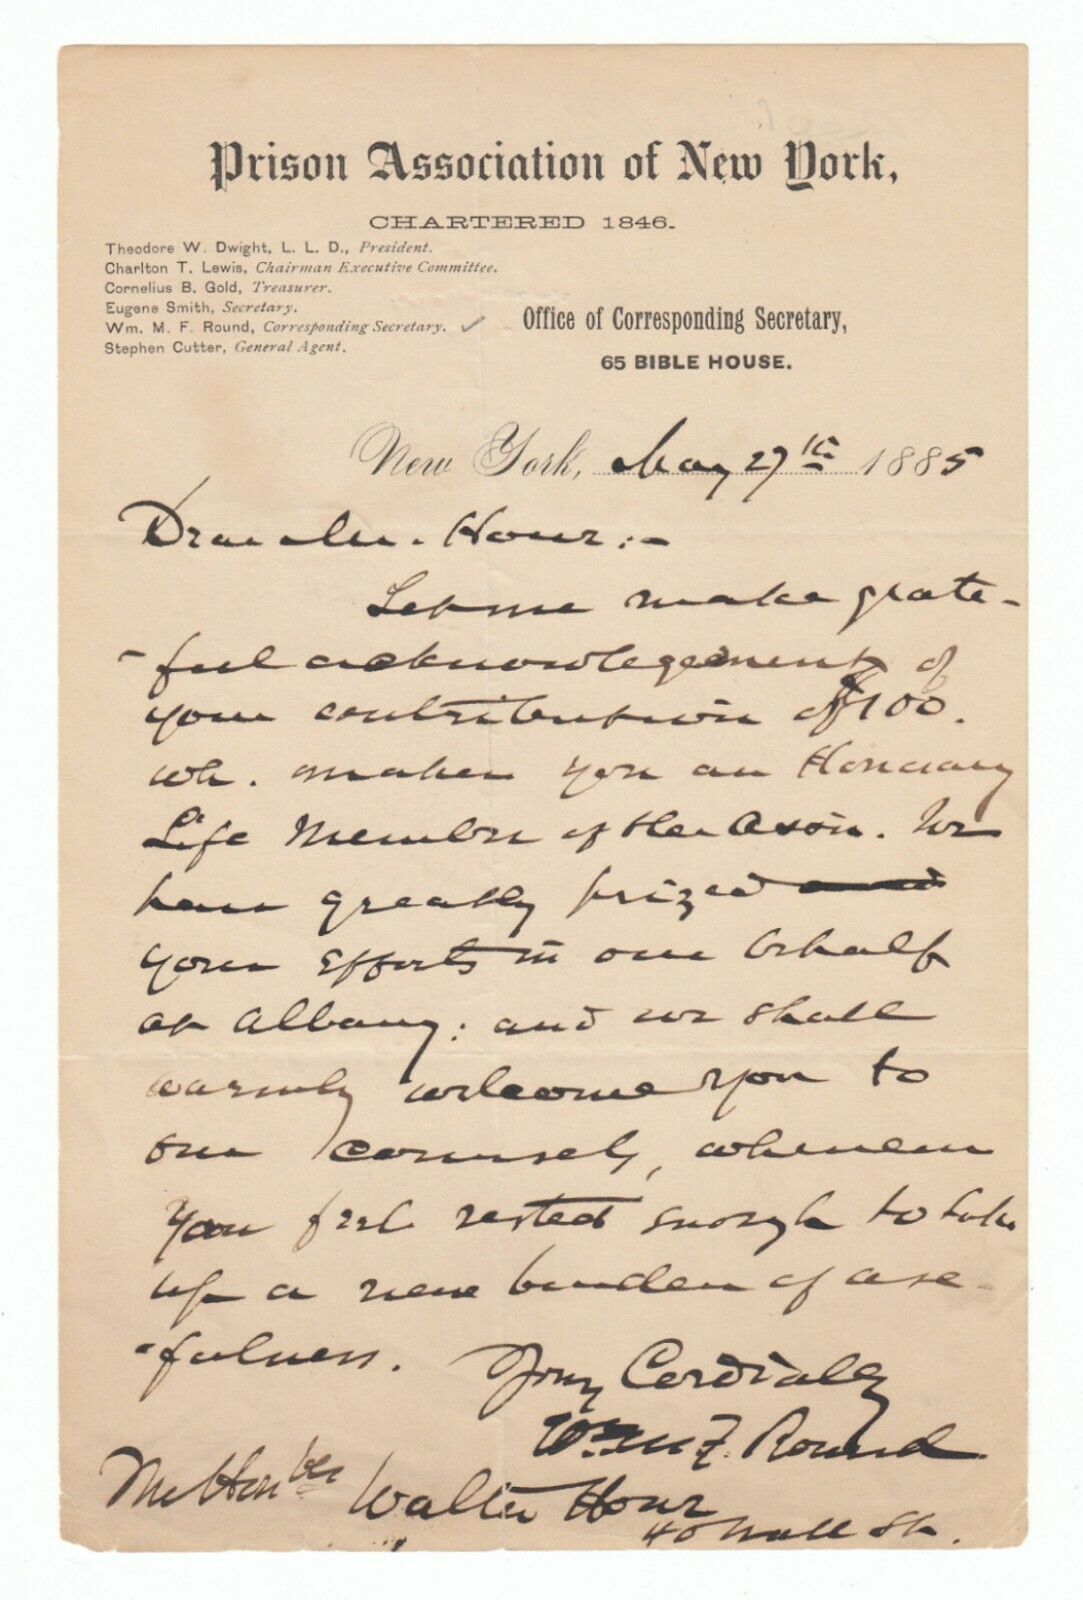 Prison Association of New York,
CHARTERED 1846.
Theodore W. Dwight, L. L. D., President.
Charlton T. Lewis, Chairman Executive Committee.
Cornelius B. Gold, Treasurer.
Eugene Smith, Secretary.
Wm. M. F. Round, Corresponding Secretary.
Stephen Cutter, General Agent.
Office of Corresponding Secretary,
65 BIBLE HOUSE.
New York, May 27th 1885
Dear Mr. Howe:-
Let me make grate-
-ful acknowledgement of
your contribution of $100.
wh. makes you an Honorary
Life Member of the Assn. We
have greatly prized
your efforts in our behalf
at Albany: and we shall
warmly welcome you to
our counsels, whenever
you feel rested enough to take
up a new burden of use-
-fulness.
Yours Cordially
Wm. M. F. Round.
The Honble
Walter Howe
40 Wall St.